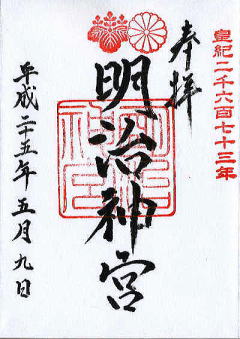 皇紀二千六百七十三年
奉拝
明治神宮
平成二十五年五月九日